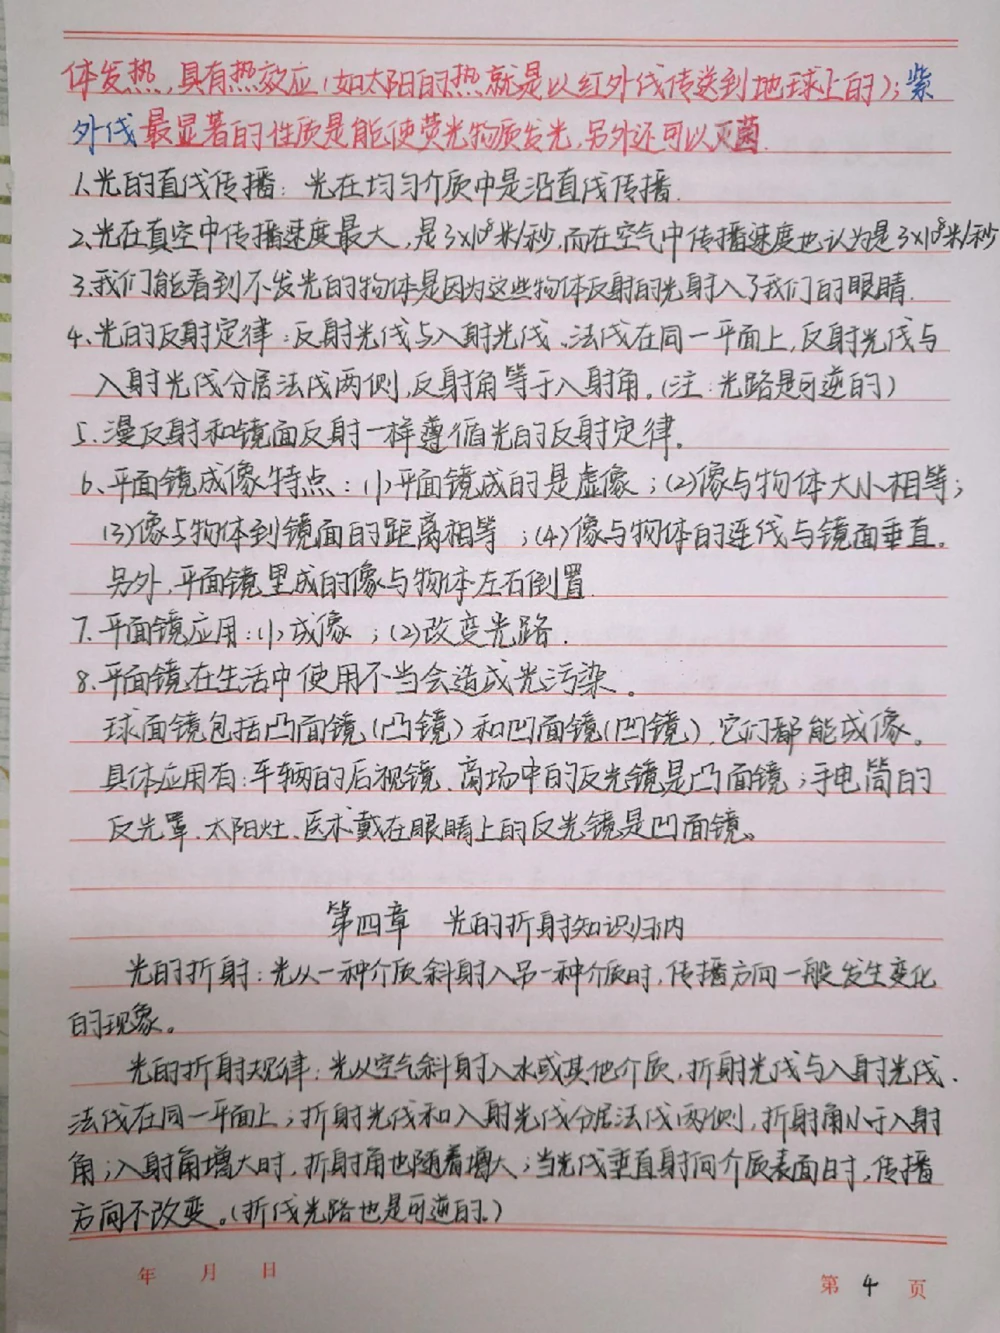 体发热,具有热效应(如太阳的热就是以红外线传送到地球上的);紫
外线最显著的性质是能使荧光物质发光,另外还可以灭菌.
1、光的直线传播:光在均匀介质中是沿直线传播.
2、光在真空中传播速度最大,是3×10⁸米/秒,而在空气中传播速度也认为是3×10⁸米/秒
3、我们能看到不发光的物体是因为这些物体反射的光射入了我们的眼睛.
4、光的反射定律:反射光线与入射光线、法线在同一平面上,反射光线与
入射光线分居法线两侧,反射角等于入射角。(注:光路是可逆的)
5、漫反射和镜面反射一样遵循光的反射定律。
6、平面镜成像特点:(1)平面镜成的是虚像;(2)像与物体大小相等;
(3)像与物体到镜面的距离相等;(4)像与物体的连线与镜面垂直。
另外,平面镜里成的像与物体左右倒置.
7、平面镜应用:(1)成像;(2)改变光路.
8、平面镜在生活中使用不当会造成光污染。
球面镜包括凸面镜(凸镜)和凹面镜(凹镜),它们都能成像。
具体应用有:车辆的后视镜、商场中的反光镜是凸面镜;手电筒的
反光罩、太阳灶、医术戴在眼睛上的反光镜是凹面镜。
第四章 光的折射知识归内
光的折射:光从一种介质斜射入另一种介质时,传播方向一般发生变化
的现象。
光的折射规律:光从空气斜射入水或其他介质,折射光线与入射光线、
法线在同一平面上;折射光线和入射光线分居法线两侧,折射角小于入射
角;入射角增大时,折射角也随着增大;当光线垂直射向介质表面时,传播
方向不改变。(折线光路也是可逆的。)
年 月 日
第 4 页